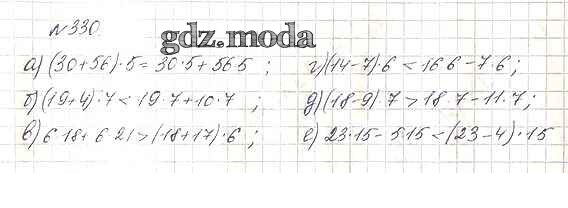 №330.
gdz.moda
а) (30+56)·5=30·5+56·5 ;
б) (19+4)·7<19·7+10·7 ;
в) 6·18+6·21>(18+17)·6 ;
г) (14-7)·6<16·6-7·6 ;
д) (18-9)·7>18·7-11·7 ;
е) 23·15-5·15<(23-4)·15